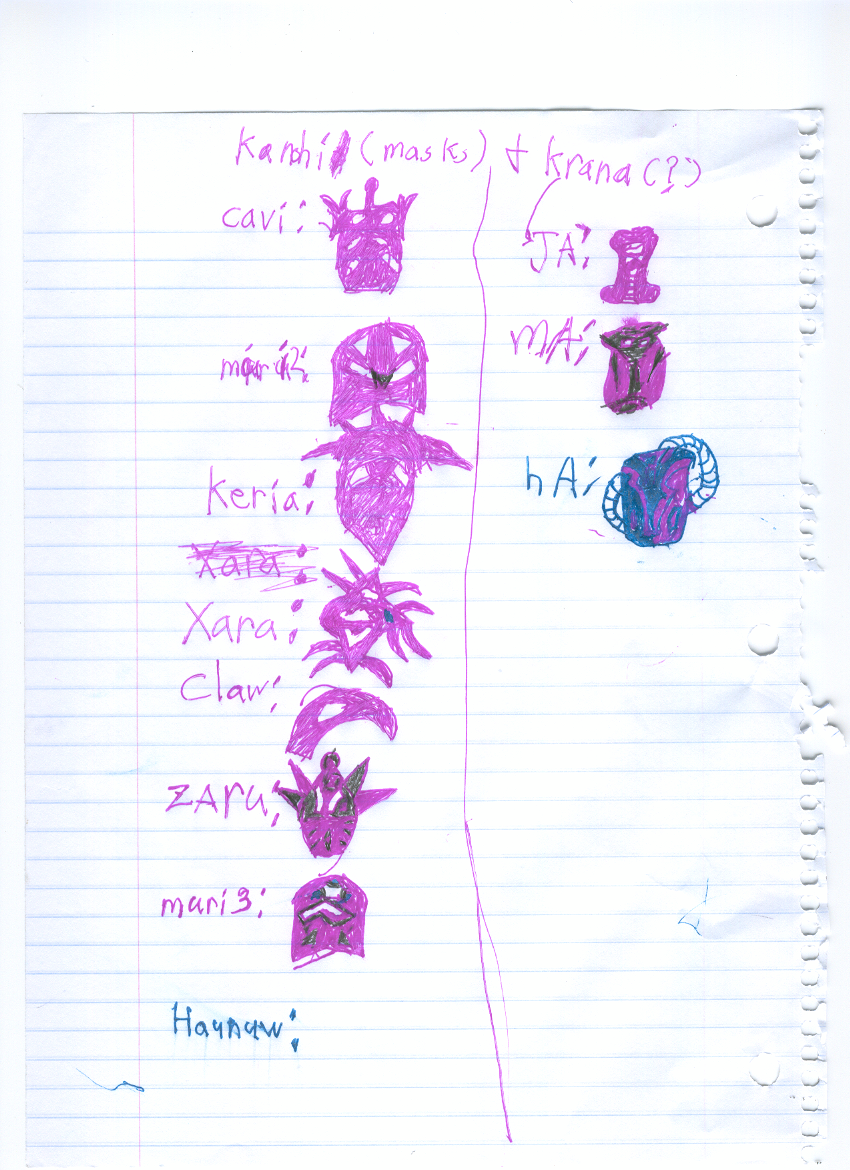 Kanohi (masks) + Krana (?)
cavi:
mari2:
Keria:
Xara:
Xara:
Claw:
ZAru:
mari3:
Haunaw:
JA:
MA:
hA: